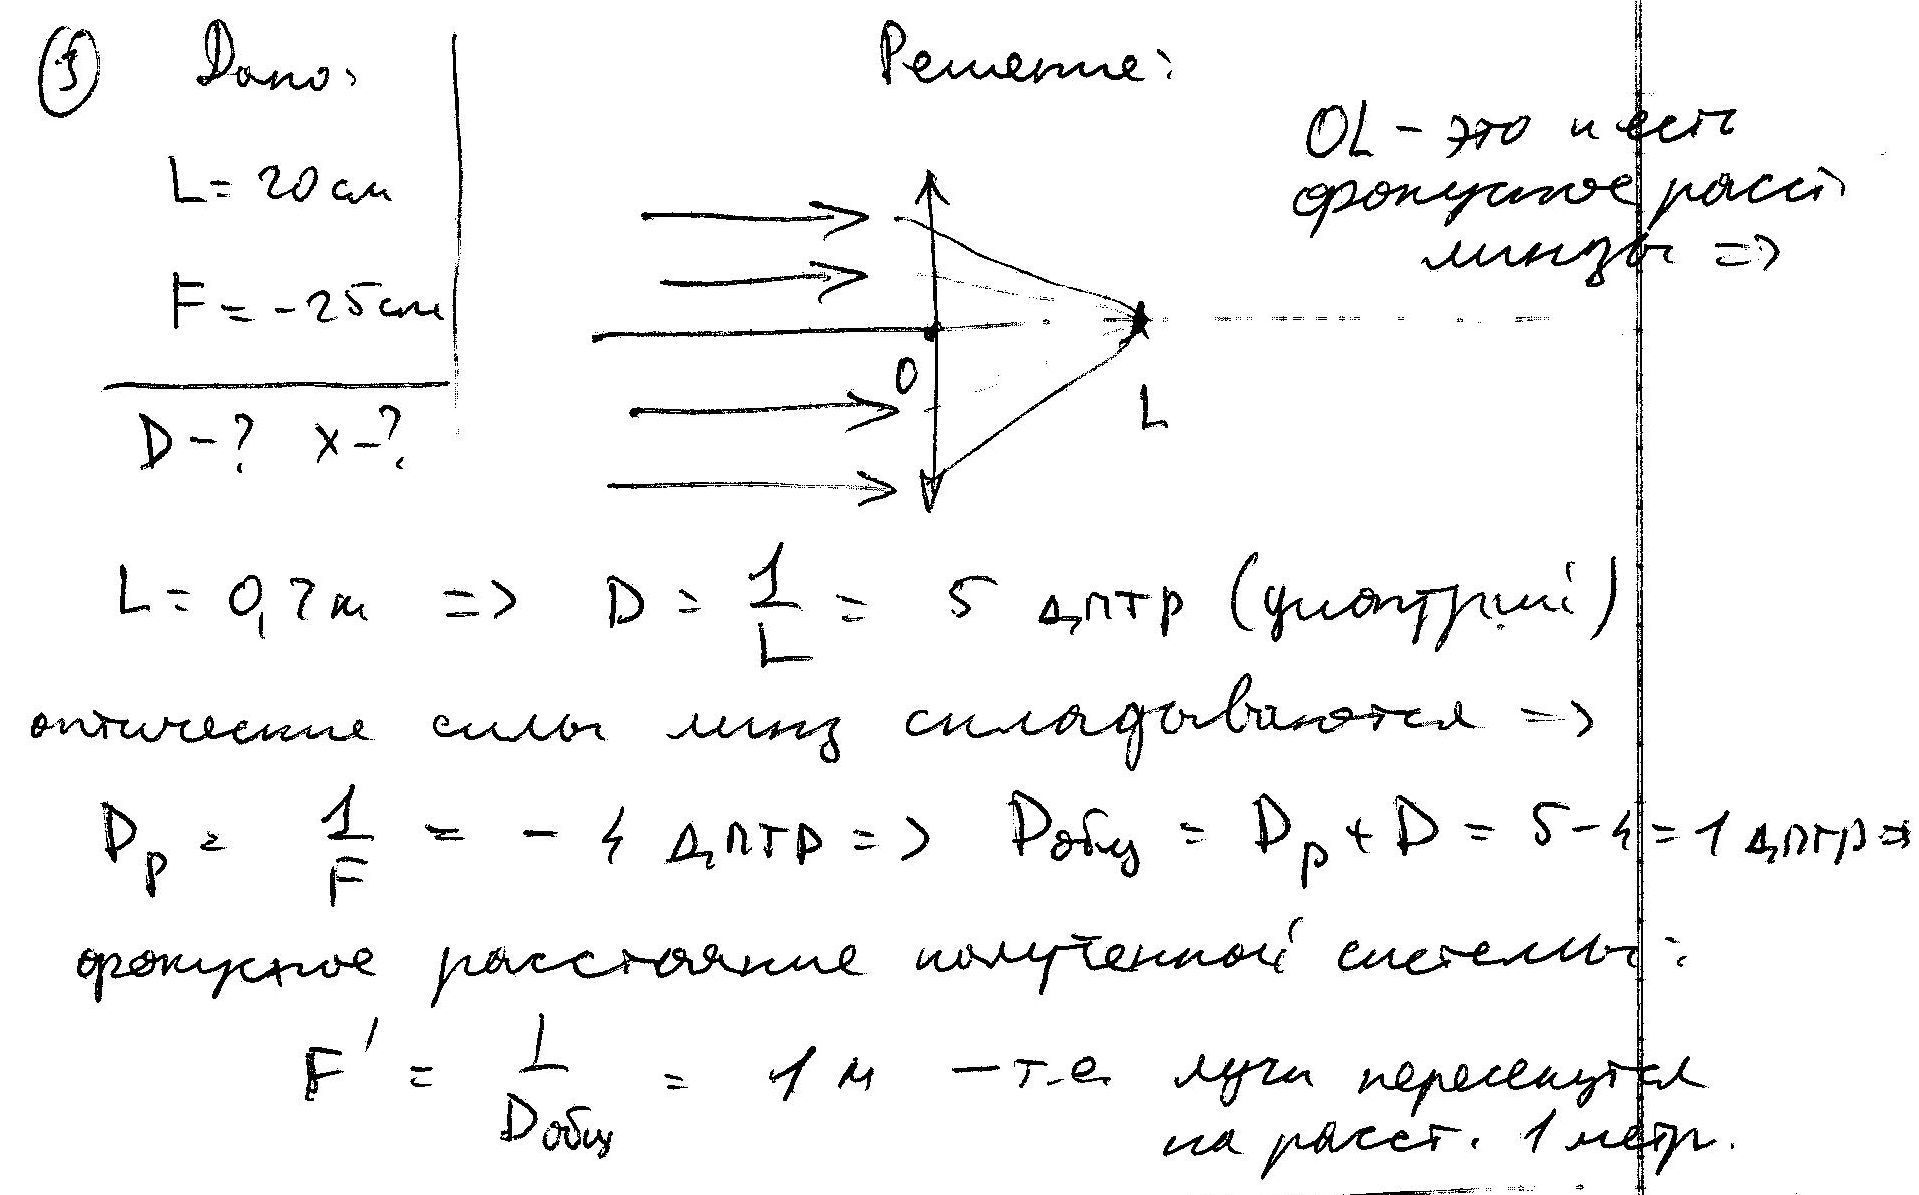 5 Дано: Решение:
L = 20 см
F = -25 см
D - ? x - ?
OL - это и есть
фокусное расст
линзы =>
O
L
L = 0,2 м => D = 1/L = 5 дптр (диоптрий)
оптические силы линз складываются =>
Dр = 1/F = - 4 дптр => Dобщ = Dр + D = 5 - 4 = 1 дптр =>
фокусное расстояние полученной системы:
F' = 1/Dобщ = 1 м - т.е. лучи пересекутся
на расст. 1 метр.